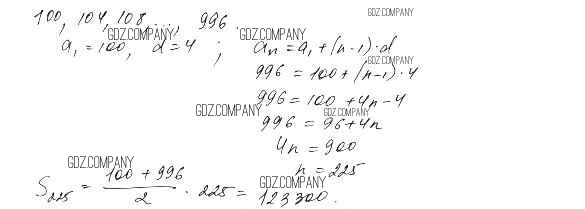 100, 104, 108 ..., 996.
GDZ.COMPANY
a₁ = 100, d = 4 ; aₙ = a₁ + (n-1)·d
GDZ.COMPANY GDZ.COMPANY
996 = 100 + (n-1)·4
GDZ.COMPANY
996 = 100 + 4n - 4
GDZ.COMPANY GDZ.COMPANY
996 = 96 + 4n
4n = 900
n = 225
GDZ.COMPANY
S₂₂₅ = (100 + 996)/2 · 225 = 123300.
GDZ.COMPANY